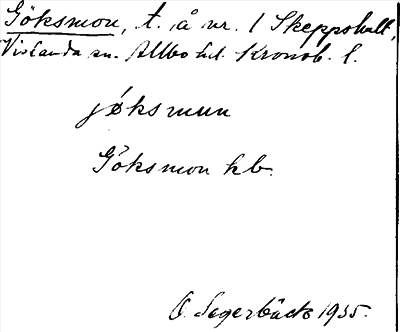 Göksmon, t. å nr. 1 Skeppshult,
Vislanda sn. Allbo hd. Kronob. l.
jøksmun
Göksmon kb.
O. Segerbäck 1935.